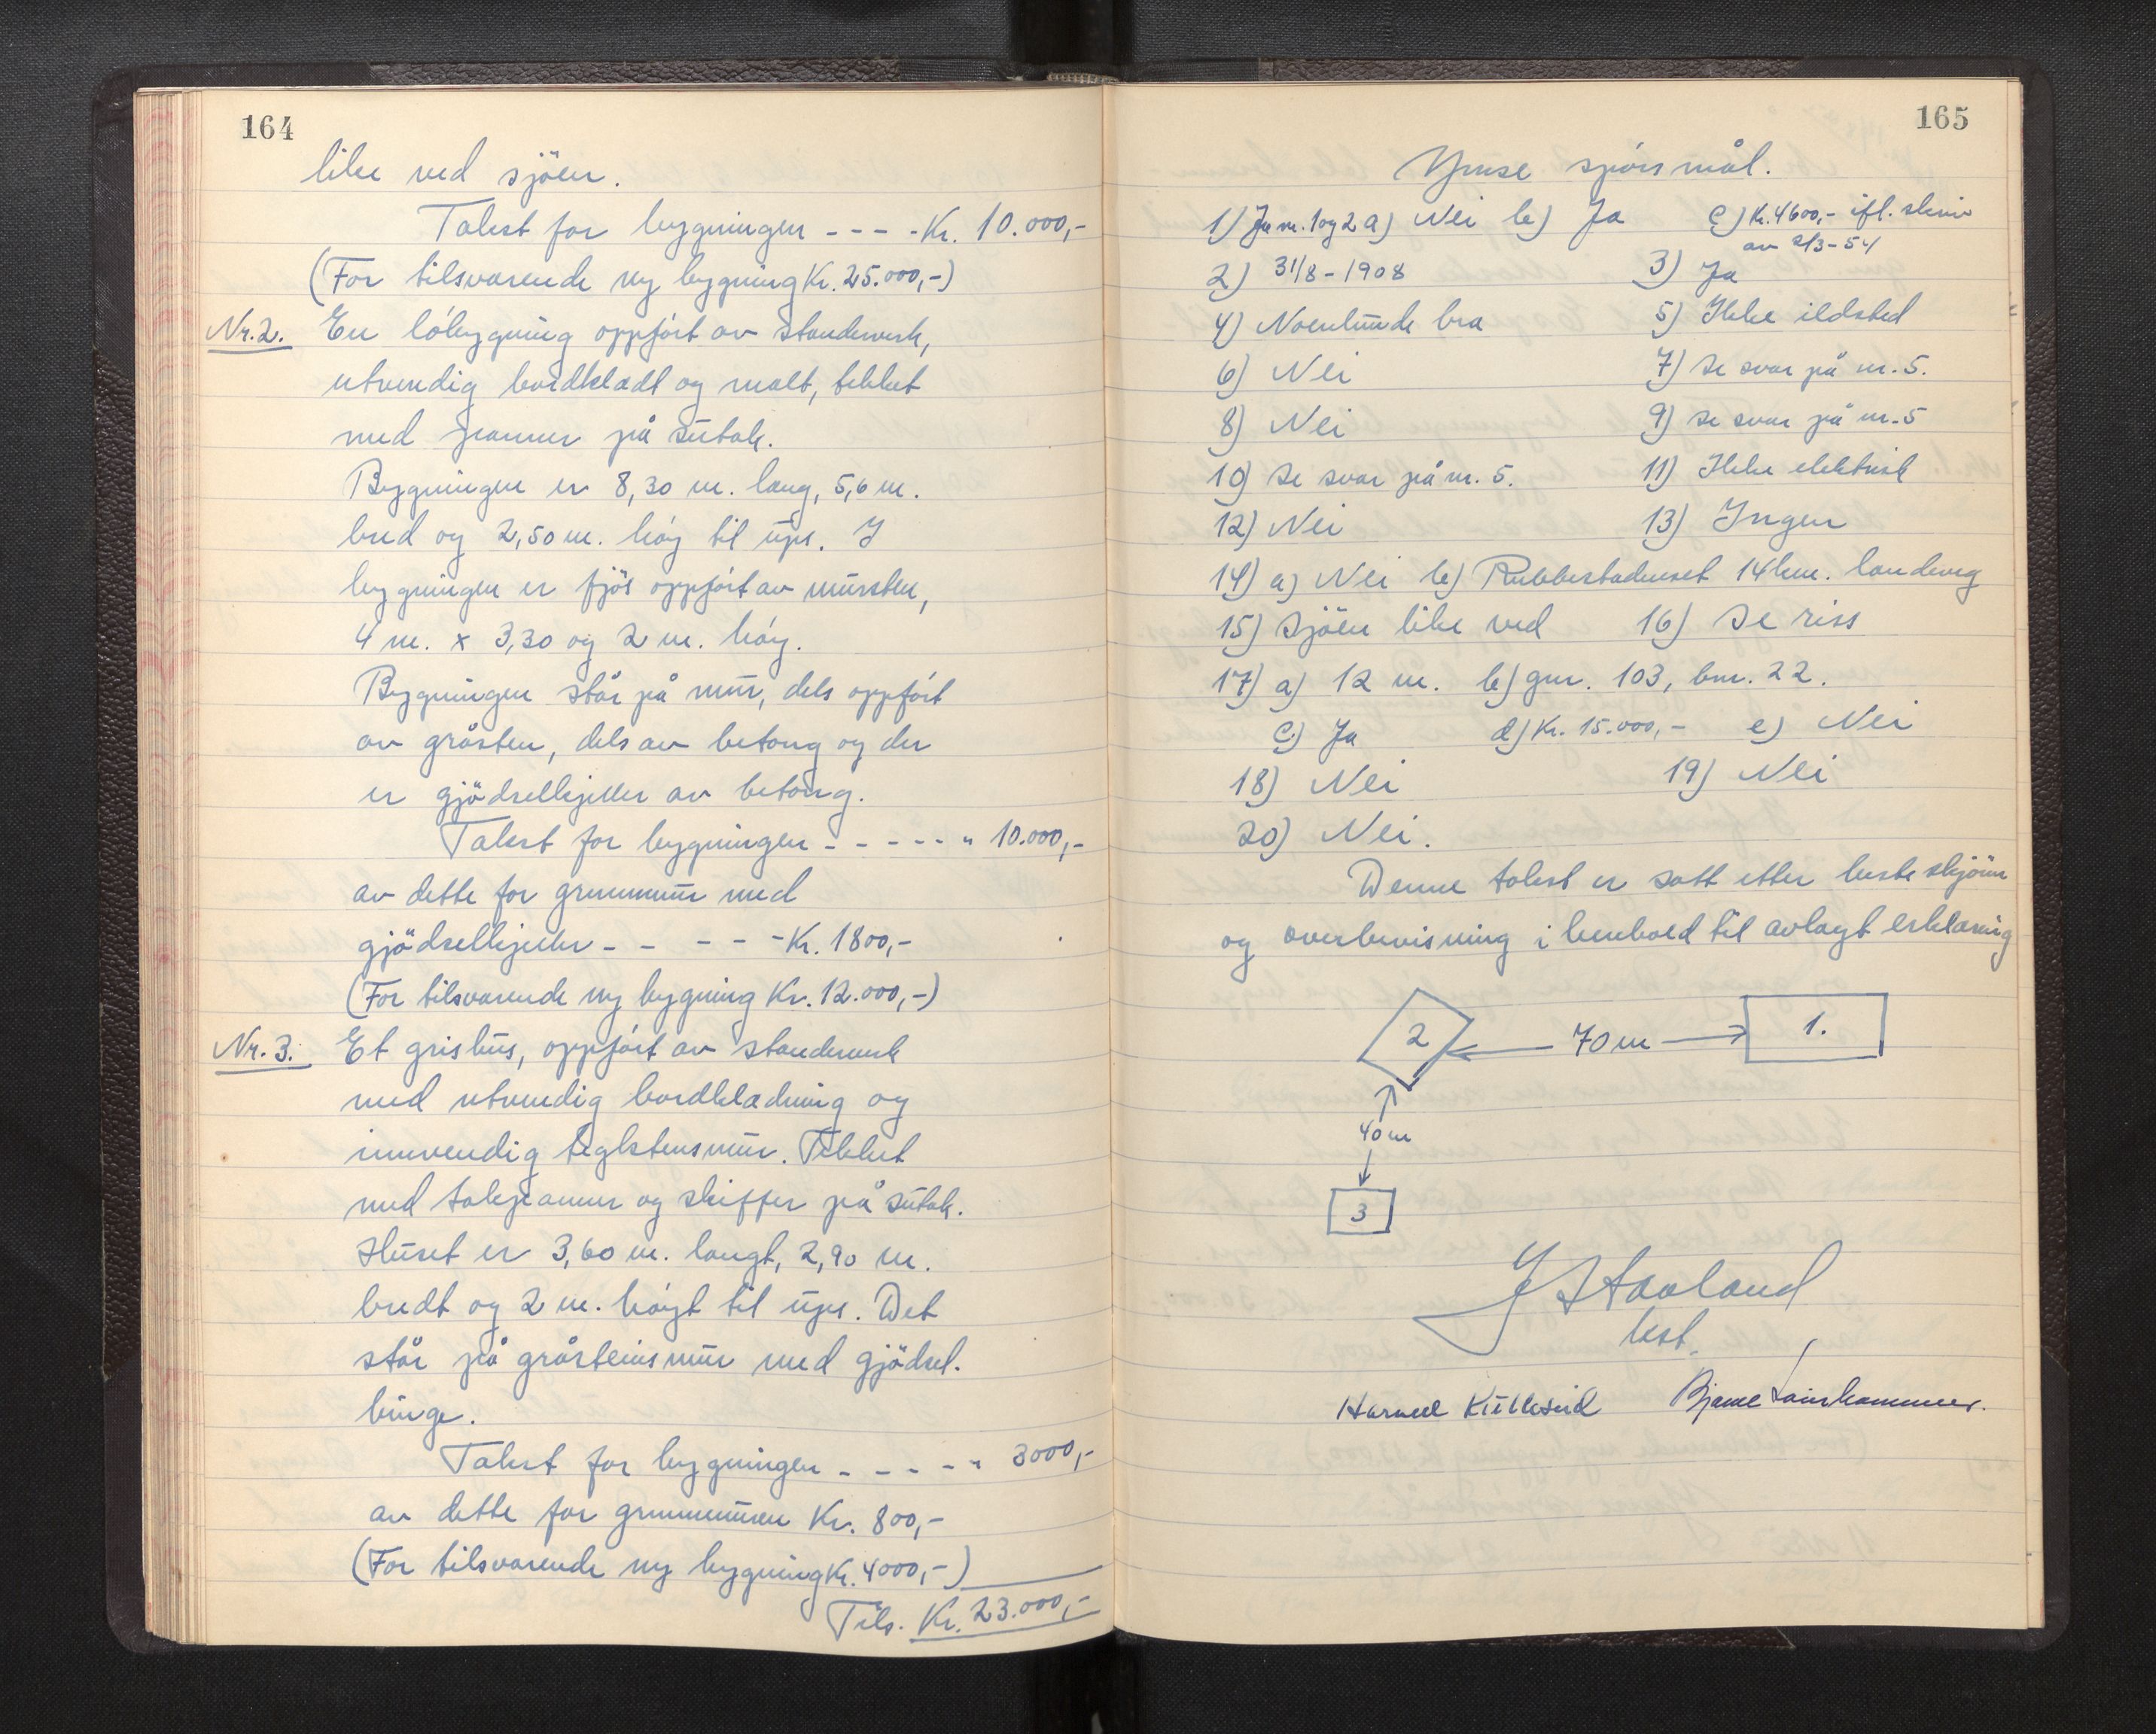 164
like ved sjöen.
Takst for bygningen - - - - Kr. 10.000,-
(For tilsvarende ny bygning Kr. 25.000,-)
Nr. 2. En löbygning oppfört av standerverk,
utvendig bordkledt og malt, tekket
med panner på sutak.
Bygningen er 8,30 m. lang, 5,6 m.
bred og 2,50 m. höy til ups. I
bygningen er fjös oppfört av mursten,
4 m. x 3,30 og 2 m. höy.
Bygningen står på mur, dels oppfört
av gråsten, dels av betong og der
er gjödselkjeller av betong.
Takst for bygningen - - - - - " 10.000,-
av dette for grunnmur med
gjödselkjeller - - - - - Kr. 1800,-
(For tilsvarende ny bygning Kr. 12.000,-)
Nr. 3. Et grishus, oppfört av standerverk
med utvendig bordkledning og
innvendig teglstensmur. Tekket
med takpanner og skiffer på sutak.
Huset er 3,60 m. langt, 2,90 m.
bredt og 2 m. höyt til ups. Det
står på gråsteinsmur med gjödsel-
binge.
Takst for bygningen - - - - - " 3000,-
av dette for grunnmuren Kr. 800,-
(For tilsvarende ny bygning Kr. 4000,-)
Tils. Kr. 23.000,-
165
Ymse spörsmål.
1) Ja nr. 1 og 2 a) Nei b) Ja c) Kr. 4600,- ifl. skriv
av 2/3-54
2) 31/8-1908 3) Ja
4) Noenlunde bra 5) Ikke ildsted
6) Nei 7) Se svar på nr. 5.
8) Nei 9) Se svar på nr. 5
10) Se svar på nr. 5. 11) Ikke elektrisk
12) Nei 13) Ingen
14) a) Nei b) Rubbestadneset 14 km. landeveg
15) Sjöen like ved 16) Se riss
17) a) 12 m. b) gnr. 103, bnr. 22.
c) Ja d) Kr. 15.000,- e) Nei
18) Nei 19) Nei
20) Nei.
Denne takst er satt etter beste skjönn
og overbevisning i henhold til avlagt erklæring
2 70 m 1.
40 m
3
J Stavland
lest.
Kulleseid Bjarne